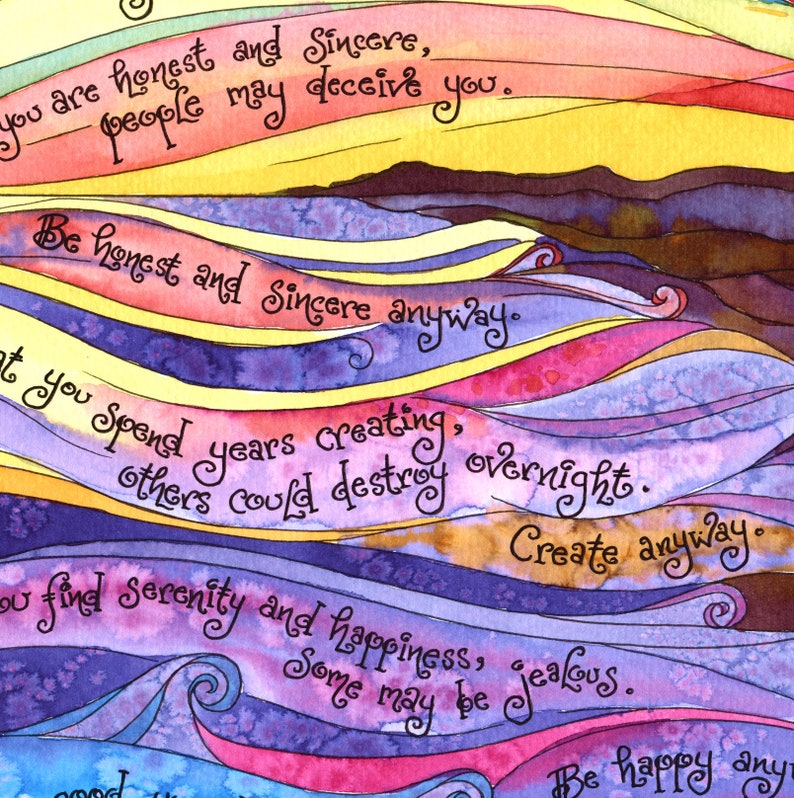 you are honest and sincere,
people may deceive you.
Be honest and sincere anyway.
you spend years creating,
others could destroy overnight.
Create anyway.
find serenity and happiness,
some may be jealous.
Be happy
good